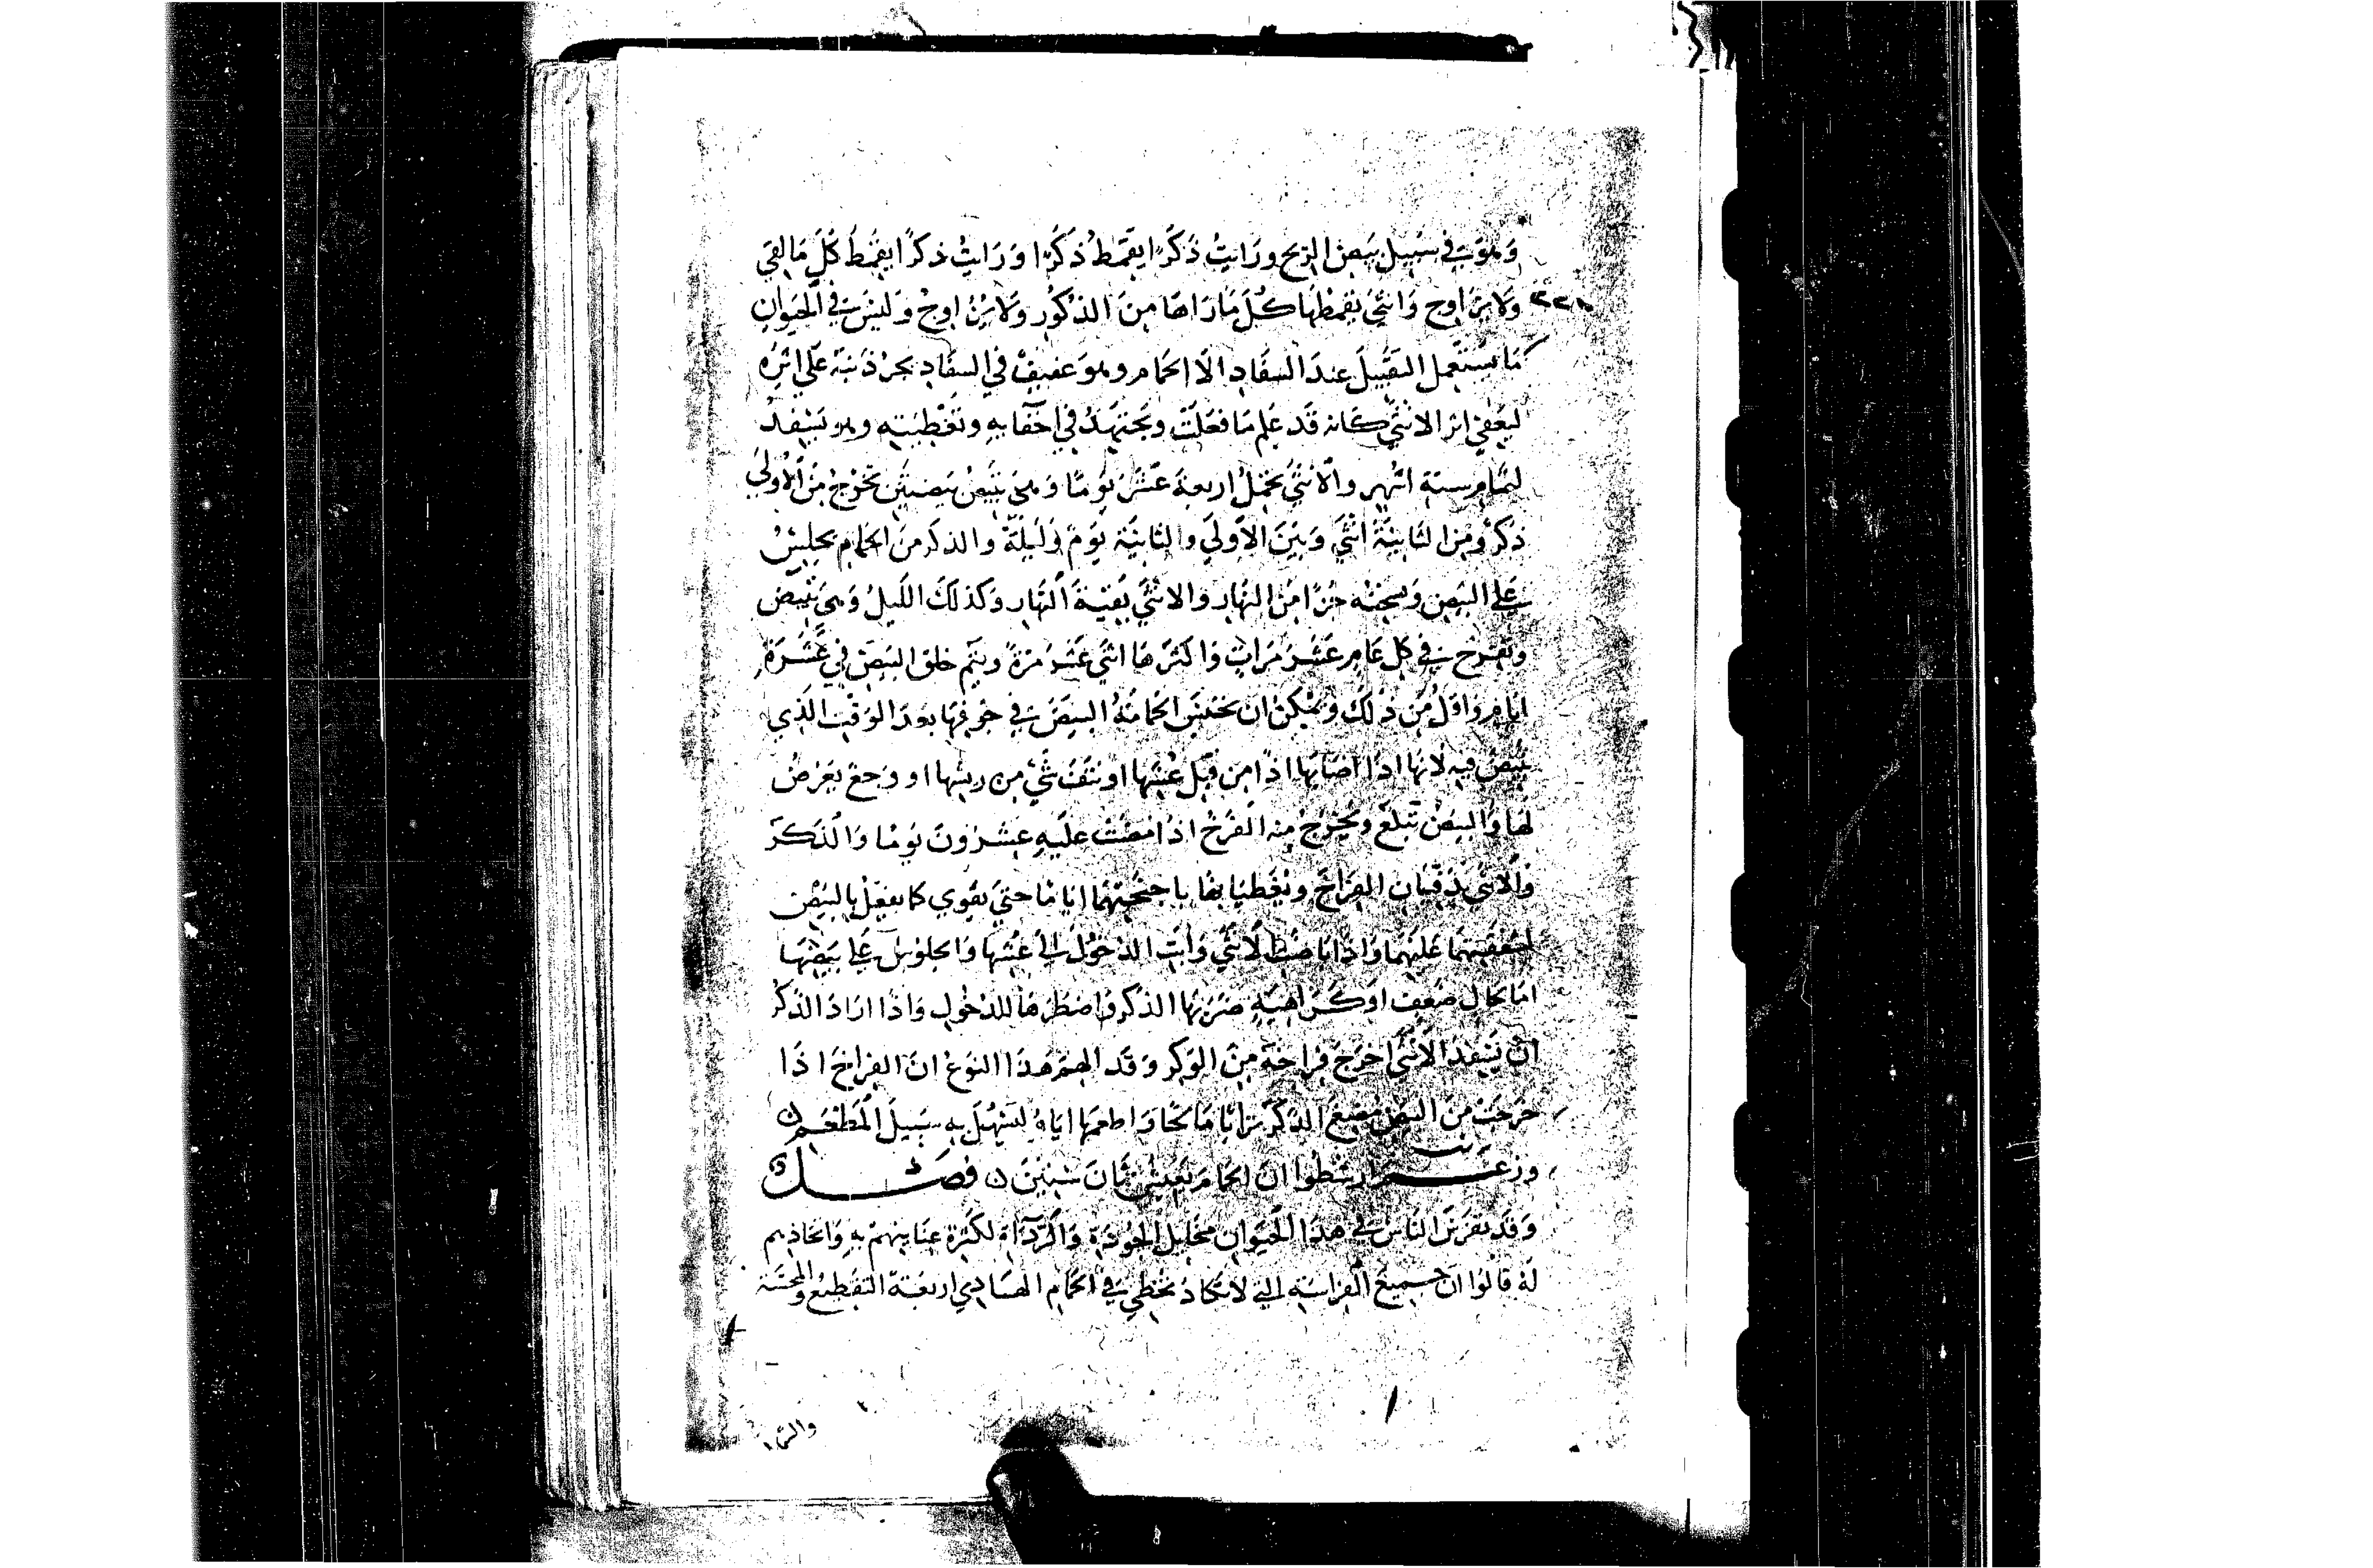 وهو في سبيل بيض الريح ورايت ذكرا يقمط ذكرا ورايت ذكرا يقمط كل ما لقي
٢٢١ ولا يزاوج وانثي يقمطها كل ما راها من الذكور ولا يزاوج وليس في الحيوان
ما يستعمل التقبيل عند السفاد الا الحمام وهو عفيف في السفاد يجر ذنبه علي اثره
ليعفي اثر الانثي كانه قد علم ما فعلت ويجتهد في اخفايه وتغطيته وهو يسفد
لتمام ستة اشهر والانثي تحمل اربعة عشر يوما وهي تبيض بيضتين تخرج من الاولي
ذكر ومن الثانية انثي وبين الاولي والثانية يوم وليلة والذكر من الحمام يجلس
علي البيض ويسخنه جزا من النهار والانثي بقية النهار وكذلك الليل وهي تبيض
وتفرخ في كل عام عشر مرات واكثرها اثني عشر مرة ويتم خلق البيض في عشرة
ايام واقل من ذلك ويمكن ان تحتبس الحمامة البيض في جوفها بعد الوقت الذي
تبيض فيه لانها اذا اصابها اذا من قبل عشها او نتف شي من ريشها او وجع يعرض
لها والبيض تبلغ ويخرج منه الفرخ اذا مضت عليه عشرون يوما والذكر
والانثي يدفيان الفراخ ويغطيانها باجنحتهما اياما حتي تقوي كما تفعل بالبيض
لشفقتهما عليهما واذا باضت الانثي وابت الدخول الي عشها والجلوس علي بيضها
اما بحال ضعف او كراهيه ضربها الذكر واضطرها للدخول واذا اراد الذكر
ان يسفد الانثي اخرج فراخه من الوكر وقد الهم هذا النوع ان الفراخ اذا
خرجت من البيض مضغ الذكر ترابا مالحا واطعمها اياه ليسهل به سبيل المطعم
وزعم ارسطوا ان الحمام تعيش ثمان سنين فصل
وقد تفرس الناس في هذا الحيوان مخايل الجودة والرداة لكثرة عنايتهم به واتخاذهم
له قالوا ان جميع الفراسه التي لا تكاد تخطي في الحمام الهادي اربعة التقطيع والمجسة